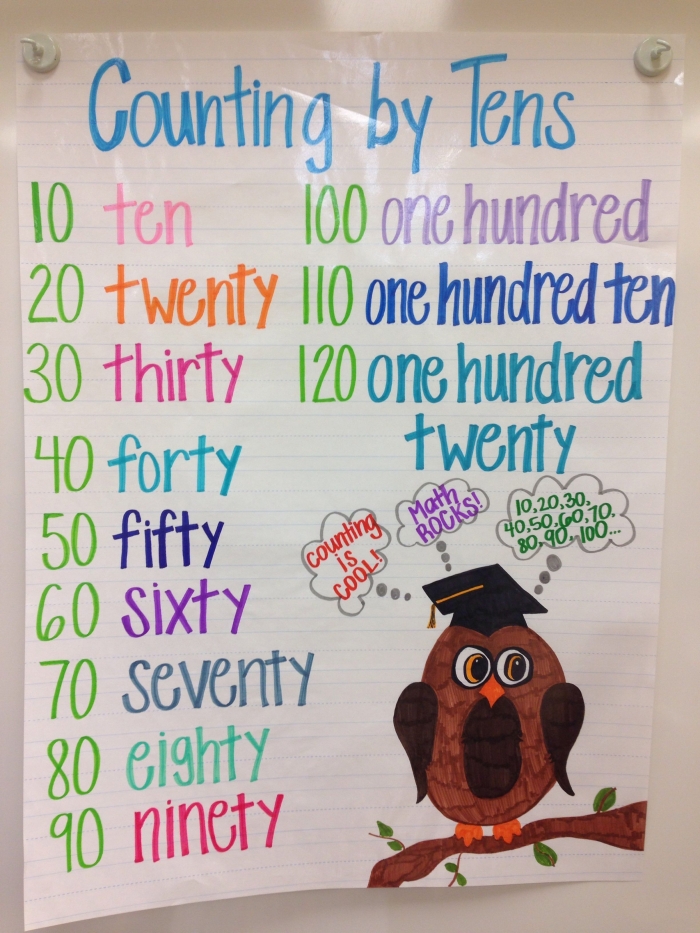 Counting by Tens
10 ten
20 twenty
30 thirty
40 forty
50 fifty
60 sixty
70 seventy
80 eighty
90 ninety
100 one hundred
110 one hundred ten
120 one hundred
twenty
counting
is
COOL!
Math
ROCKS!
10, 20, 30,
40, 50, 60, 70,
80, 90, 100...